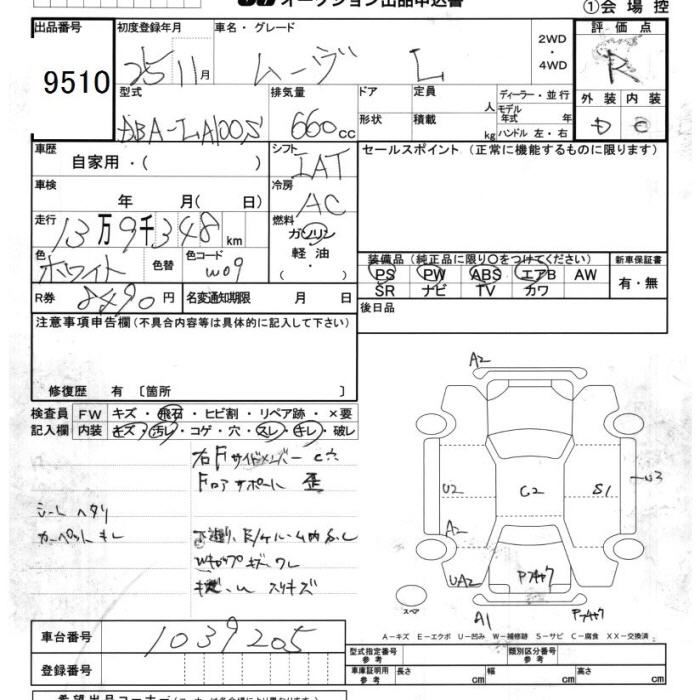 オークション出品申込書
①会場控
出品番号
9510
初度登録年月
25 11月
車名・グレード
ムーヴ L
2WD
・
4WD
評価点
R
外装 内装
D D
型式
DBA-LA100S
排気量
660cc
ドア
形状
定員
人
積載
kg
ディーラー・並行
モデル年式
年
ハンドル 左・右
車歴
自家用・( )
シフト
IAT
セールスポイント (正常に機能するものに限ります)
車検
年 月( 日)
冷房
AC
走行
13万9千348km
燃料
ガソリン
軽油
・
色
ホワイト
色替
色コード
W09
装備品(純正品に限り〇をつけてください)
PS PW ABS エアB AW
SR ナビ TV カワ
新車保証書
有・無
R券
8490円
名変通知期限 月 日
後日品
注意事項申告欄 (不具合内容等は具体的に記入して下さい)
修復歴 有 〔箇所 〕
検査員記入欄
FW キズ・飛石・ヒビ割・リペア跡・×要
内装 キズ・汚レ・コゲ・穴・スレ・キレ・破レ
右Fサイドメンバー C穴
Fロアサポート 歪
シートヘタリ
カーペットキレ
A2
U2
C2
S1
U3
A2
UA2
Pフキャケ
A1
Pフキャケ
スペア
A－キズ E－エクボ U－凹み W－補修跡 S－サビ C－腐食 XX－交換済
車台番号
1039205
登録番号
型式指定番号
参考
類別区分番号
参考
車庫証明用
参考
長さ cm
幅 cm
高さ cm
希望出品コーナー